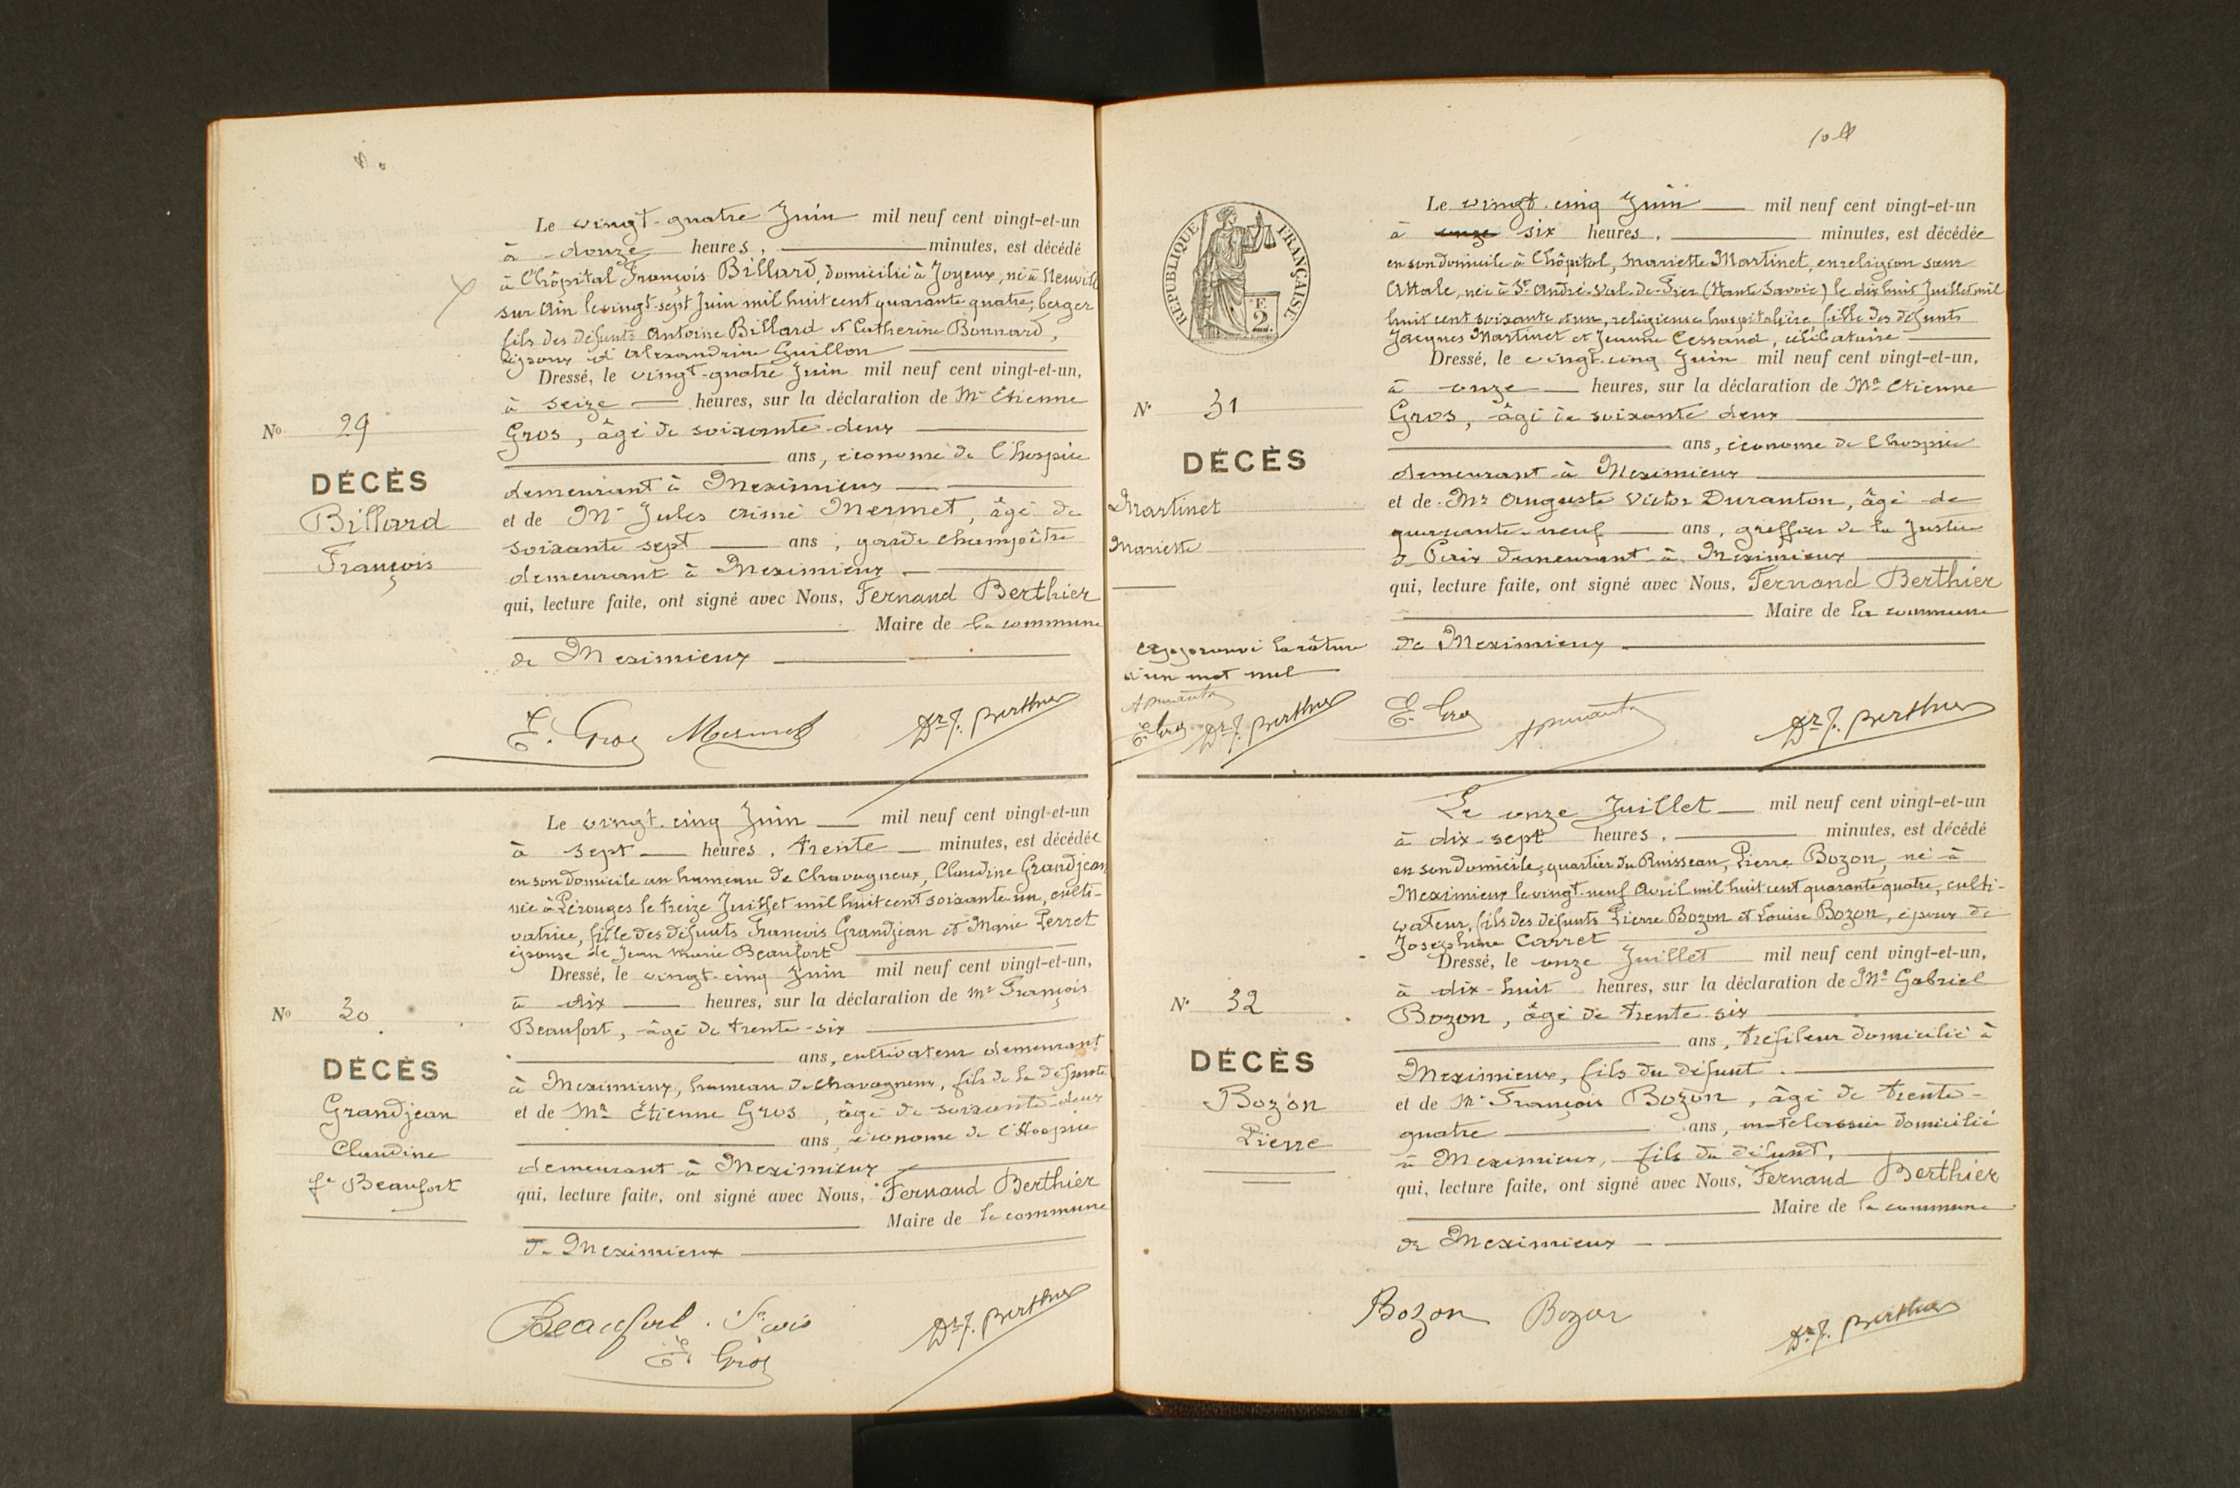 Le vingt-quatre Juin mil neuf cent vingt-et-un
à douze heures, minutes, est décédé
à l'hôpital François Billard, domicilié à Joyeux, né à Neuville
sur Ain le vingt-sept Juin mil huit cent quarante quatre, berger
fils des défunts Antoine Billard et Catherine Bonnard,
époux d'Alexandrine Guillon
Dressé, le vingt-quatre Juin mil neuf cent vingt-et-un,
à seize heures, sur la déclaration de Mr Etienne
Gros, âgé de soixante-deux
ans, économe de l'hospice
demeurant à Meximieux
et de Mr Jules Aimé Mermet, âgé de
soixante sept ans, garde champêtre
demeurant à Meximieux
qui, lecture faite, ont signé avec Nous, Fernand Berthier
Maire de la commune
de Meximieux
No 29
DÉCÈS
Billard
François
E. Gros Mermet Dr F. Berthier
Le vingt-cinq Juin mil neuf cent vingt-et-un
à sept heures, trente minutes, est décédée
en son domicile au hameau de Chavagneux, Claudine Grandjean
née à Pérouges le treize Juillet mil huit cent soixante-un, culti-
vatrice, fille des défunts François Grandjean et Marie Perret
épouse de Jean Marie Beaufort
Dressé, le vingt-cinq Juin mil neuf cent vingt-et-un,
à dix heures, sur la déclaration de Mr François
Beaufort, âgé de trente-six
ans, cultivateur demeurant
à Meximieux, hameau de Chavagneux, fils de la défunte
et de Mr Etienne Gros, âgé de soixante-deux
ans, économe de l'Hospice
demeurant à Meximieux
qui, lecture faite, ont signé avec Nous, Fernand Berthier
Maire de la commune
de Meximieux
No 30
DÉCÈS
Grandjean
Claudine
fe Beaufort
Beaufort Dr F. Berthier
E. Gros
RÉPUBLIQUE FRANÇAISE
E
2
Le vingt-cinq Juin mil neuf cent vingt-et-un
à onze six heures, minutes, est décédée
en son domicile à l'hôpital, Mariette Martinet, en religion sœur
Attale, née à St André-Val-de-Fier (Haute Savoie) le dix huit Juillet mil
huit cent soixante et un, religieuse hospitalière fille des défunts
Jacques Martinet et Jeanne Cessand, célibataire
Dressé, le vingt-cinq Juin mil neuf cent vingt-et-un,
à onze heures, sur la déclaration de Mr Etienne
Gros, âgé de soixante deux
ans, économe de l'hospice
demeurant à Meximieux
et de Mr Auguste Victor Duranton, âgé de
quarante-neuf ans, greffier de la Justice
de Paix demeurant à Meximieux
qui, lecture faite, ont signé avec Nous, Fernand Berthier
Maire de la commune
de Meximieux
No 31
DÉCÈS
Martinet
Mariette
Approuvé la râture
d'un mot nul
A Duranton
E. Gros Dr F. Berthier
E. Gros A Duranton Dr F. Berthier
Le onze Juillet mil neuf cent vingt-et-un
à dix-sept heures, minutes, est décédé
en son domicile, quartier du Ruisseau, Pierre Bozon, né à
Meximieux le vingt-neuf Avril mil huit cent quarante quatre, culti-
vateur, fils des défunts Pierre Bozon et Louise Bozon, époux de
Joséphine Carret
Dressé, le onze Juillet mil neuf cent vingt-et-un,
à dix-huit heures, sur la déclaration de Mr Gabriel
Bozon, âgé de trente-six
ans, tréfileur domicilié à
Meximieux, fils du défunt
et de Mr François Bozon, âgé de trente-
quatre ans, matelassier domicilié
à Meximieux, fils du défunt,
qui, lecture faite, ont signé avec Nous, Fernand Berthier
Maire de la commune
de Meximieux
No 32
DÉCÈS
Bozon
Pierre
Bozon Bozon Dr F. Berthier